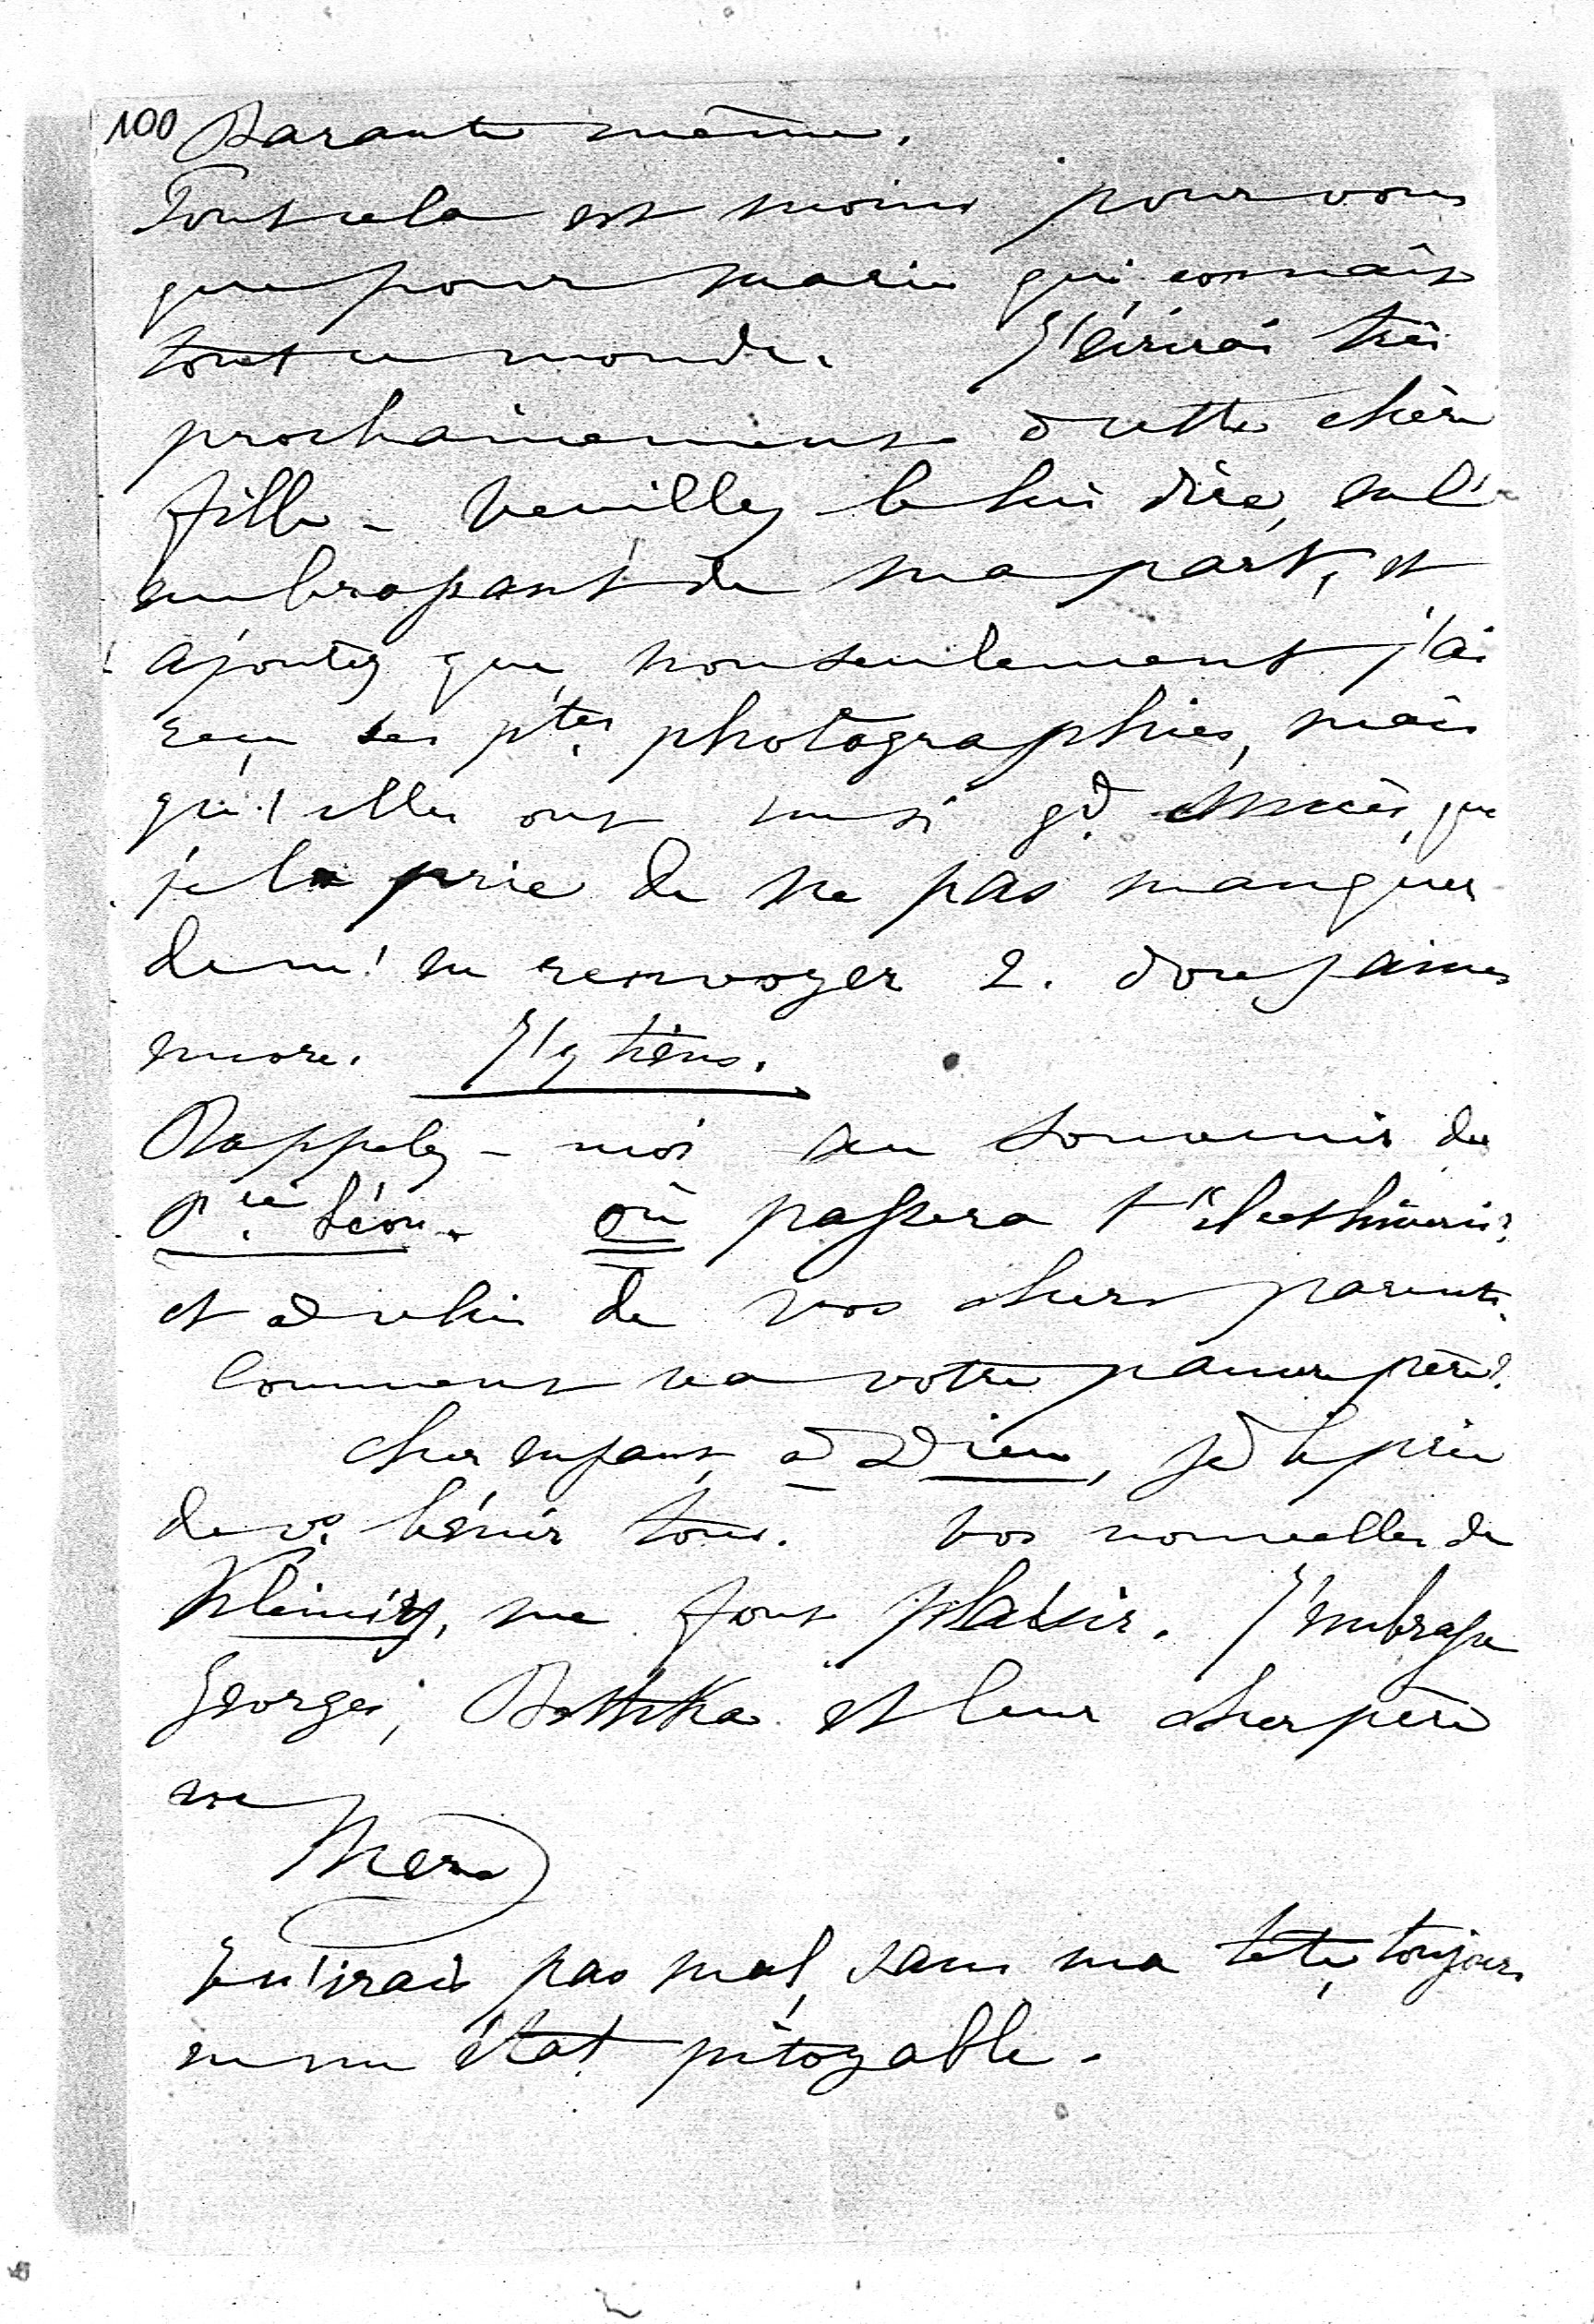 100 Barante même.
Tout cela est moins pour vous
que pour Marie qui connait
tout ce monde. J'écrirai très
prochainement à cette chère
fille - Veuillez le lui dire, en l'
embrassant de ma part, et
ajoutez que nonseulement j'ai
reçu ses ptes photographies, mais
qu'elles ont un si gd succès, que
je la prie de ne pas manquer
de m'en renvoyer 2. douzaines
encore. J'y tiens.
Rappelez-moi au souvenir du
Pce Léon. où passera t'il cet hiver?
et à celui de vos chers parents.
Comment va votre pauvre père?
Cher enfant, à Dieu, je le prie
de vs bénir tous. Vos nouvelles de
me font plaisir. J'embrasse
Georges, et leur cher père
Mère
Je n'irais pas mal, sans ma tête, toujours
en un état pitoyable.